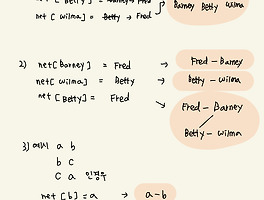 net[Wilma] = Betty → Fred
Barney Betty Wilma
2) net[Barney] = Fred → Fred - Barney
net[Wilma] = Betty → Betty - Wilma
net[Betty] = Fred → Fred - Barney
Betty - Wilma
3) 예시 a b
b c
c a 인경우
net[b] = a → a-b